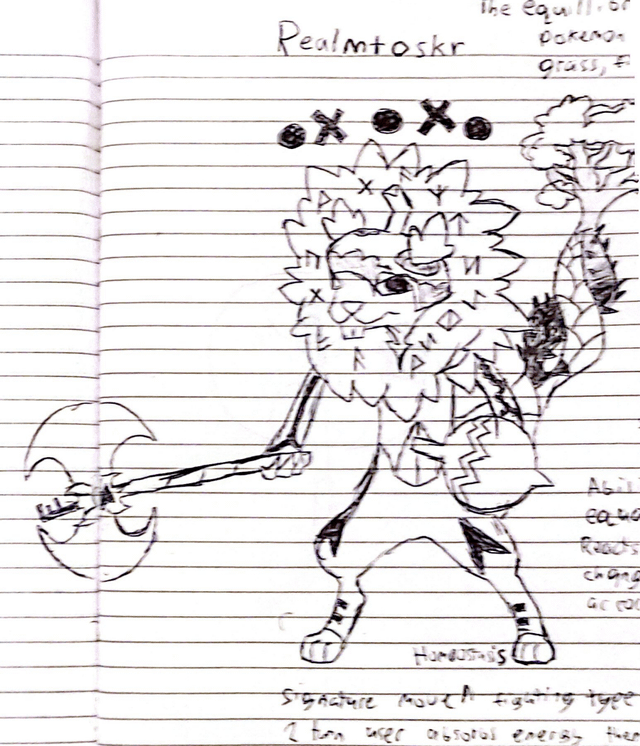 The equili
Realmtoskr
pokemon
grass, fi
Abili
equa
Reacts
chang
acco
Homeostasis
Signature move ^ fighting type
2 turn user absorbs energy then